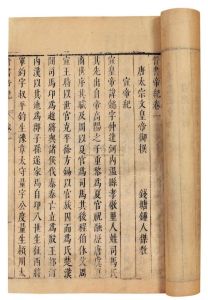 晉書帝紀卷一
唐太宗文皇帝御撰
錢塘鍾人傑校
宣帝紀
宣皇帝諱懿字仲達河內溫縣孝敬里人姓司馬氏
其先出自帝高陽之子重黎爲夏官祝融歷唐虞夏
商世序其職及周以夏官爲司馬其後程伯休父周
宣王時以世官克平徐方錫以官族因而爲氏楚漢
間司馬卬爲趙將與諸侯伐秦秦亡立爲殷王都河
內漢以其地爲郡子孫遂家焉自卬八世生征西將
軍鈞字叔平鈞生豫章太守量字公度量生潁川太